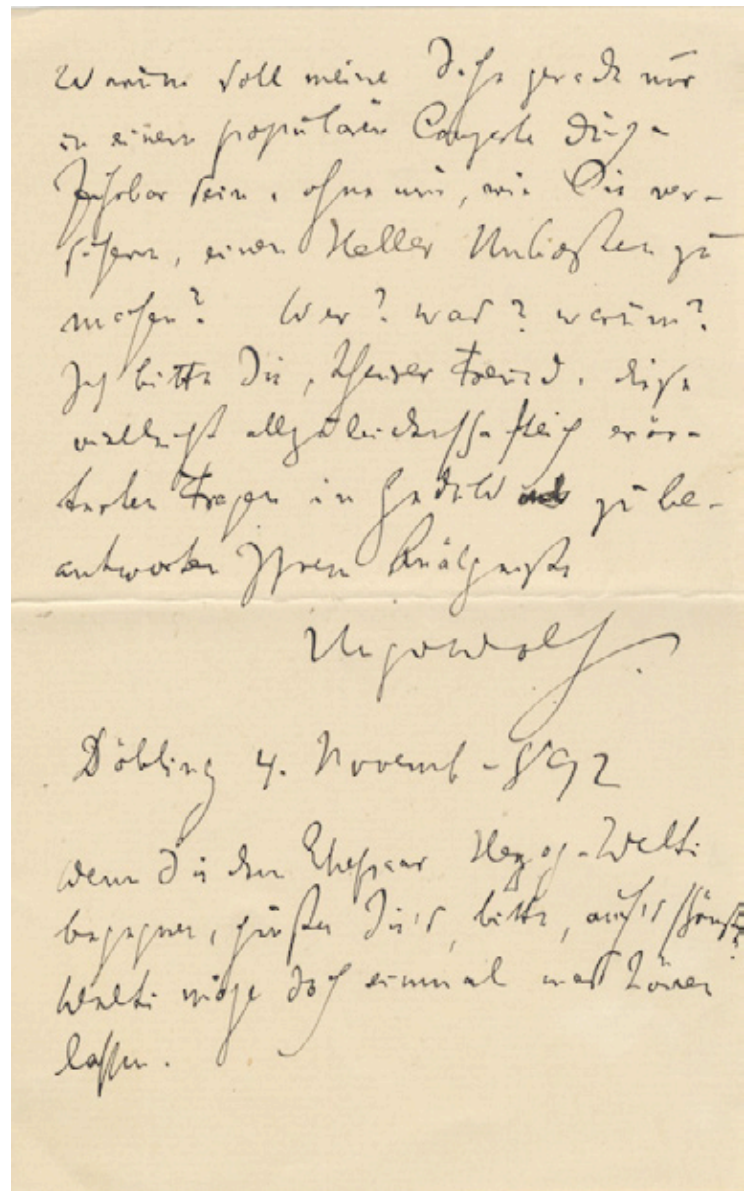 Warum soll meine Sache gerade nur
in einem populären Concerte durch-
führbar sein, ohne mir, wie Sie ver-
sichern, einen Heller Unkosten zu
machen? Wer? was? warum?
Ich bitte Sie, theurer Freund, diese
vielleicht allzuleidenschaftlich erör-
terten Fragen in Geduld zu be-
antworten Ihrem
Hugo Wolf
Döbling 4. Novemb 892
Wenn Sie dem Ehepaar Herzog-Welti
begegnen, grüßen Sie's, bitte, auf's schönste
Welti möge doch einmal was hören
lassen.